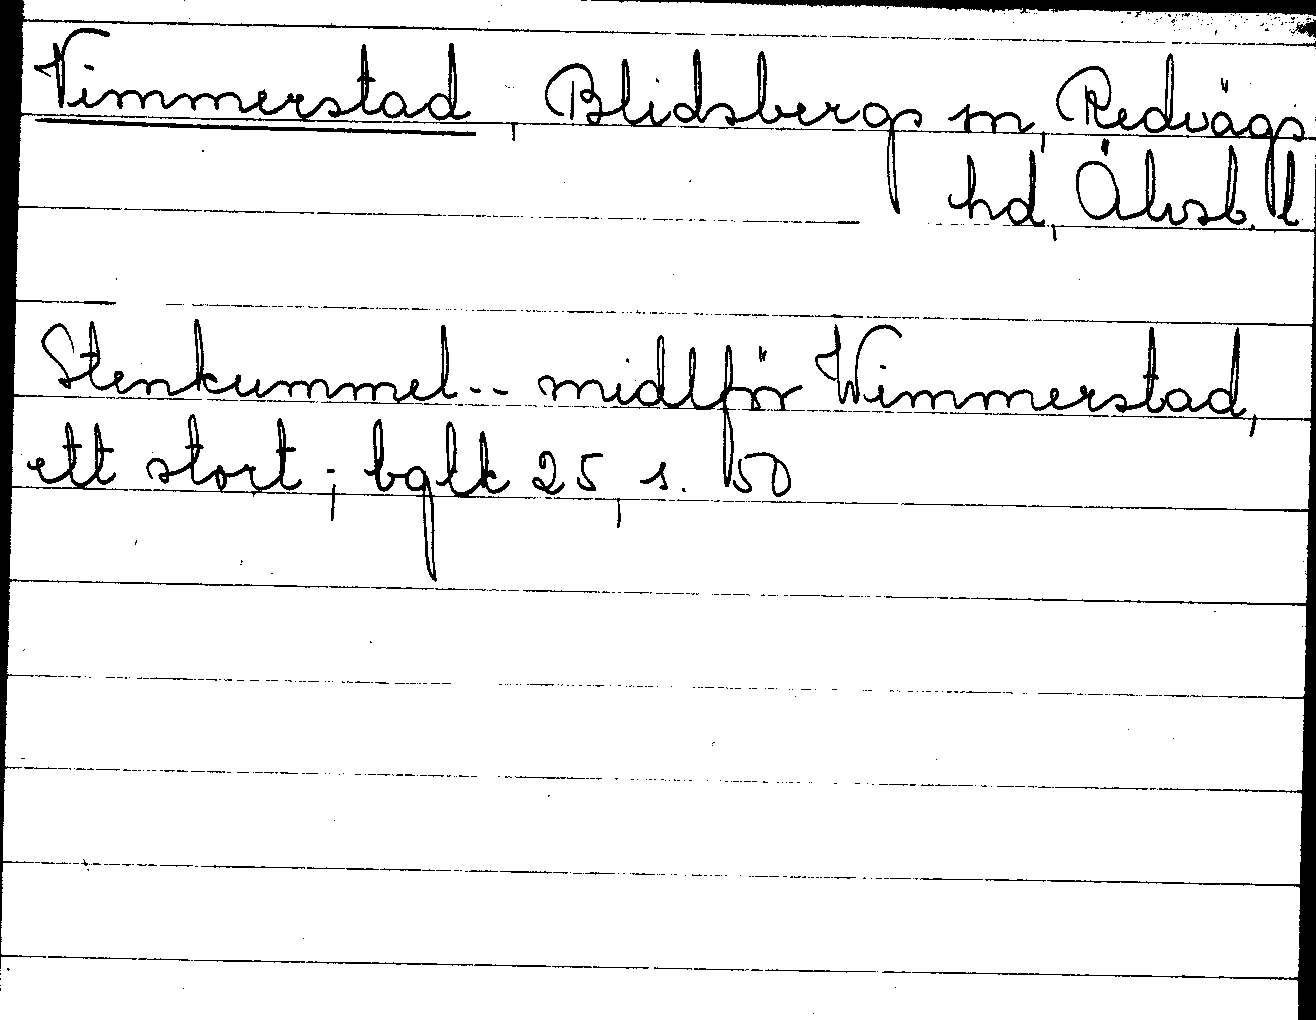 Vimmerstad, Blidsbergs sn, Redvägs
hd, Älvsb. l
Stenkummel -- midtför Wimmerstad,
ett stort; bglk 25, s. 50